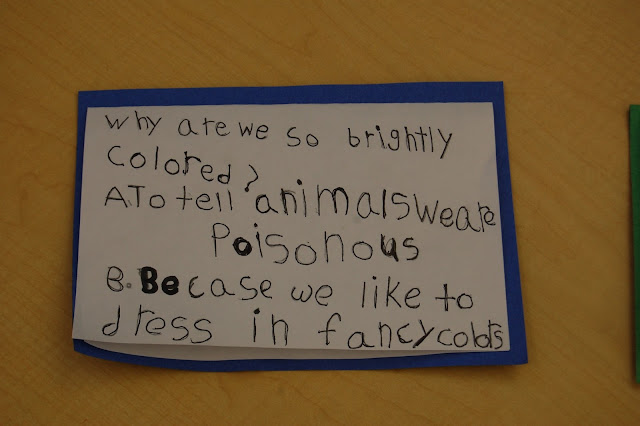 Why are we so brightly
colored?
A.To tell animals we are
Poisonous
B. Becase we like to
dress in fancy colors